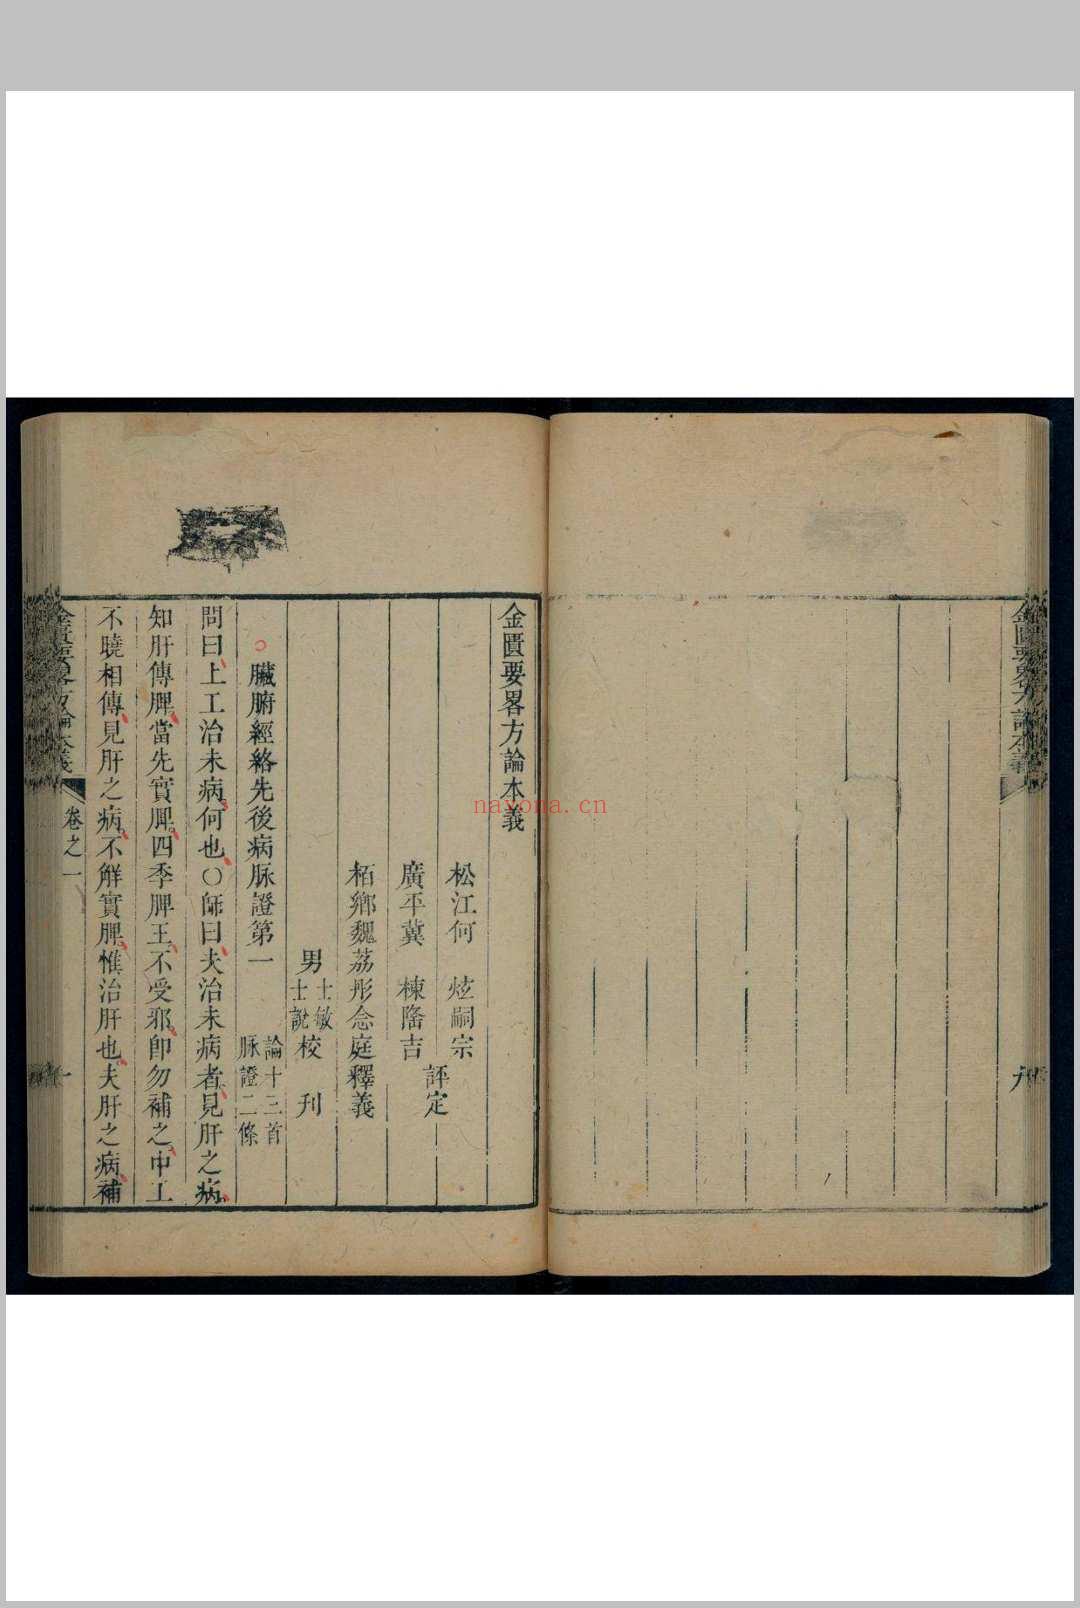 金匱要畧方論本義
九
金匱要畧方論本義
松江何　炫嗣宗
廣平冀　棟隆吉
評定
栢鄉魏荔彤念庭釋義
男士敏士說校　刊
臟腑經絡先後病脉證第一　論十三首脉證二條
問曰上工治未病何也○師曰夫治未病者見肝之病
知肝傳脾當先實脾四季脾王不受邪卽勿補之中工
不曉相傳見肝之病不解實脾惟治肝也夫肝之病補
金匱要畧方論本義　卷之一　一
nayona.cn